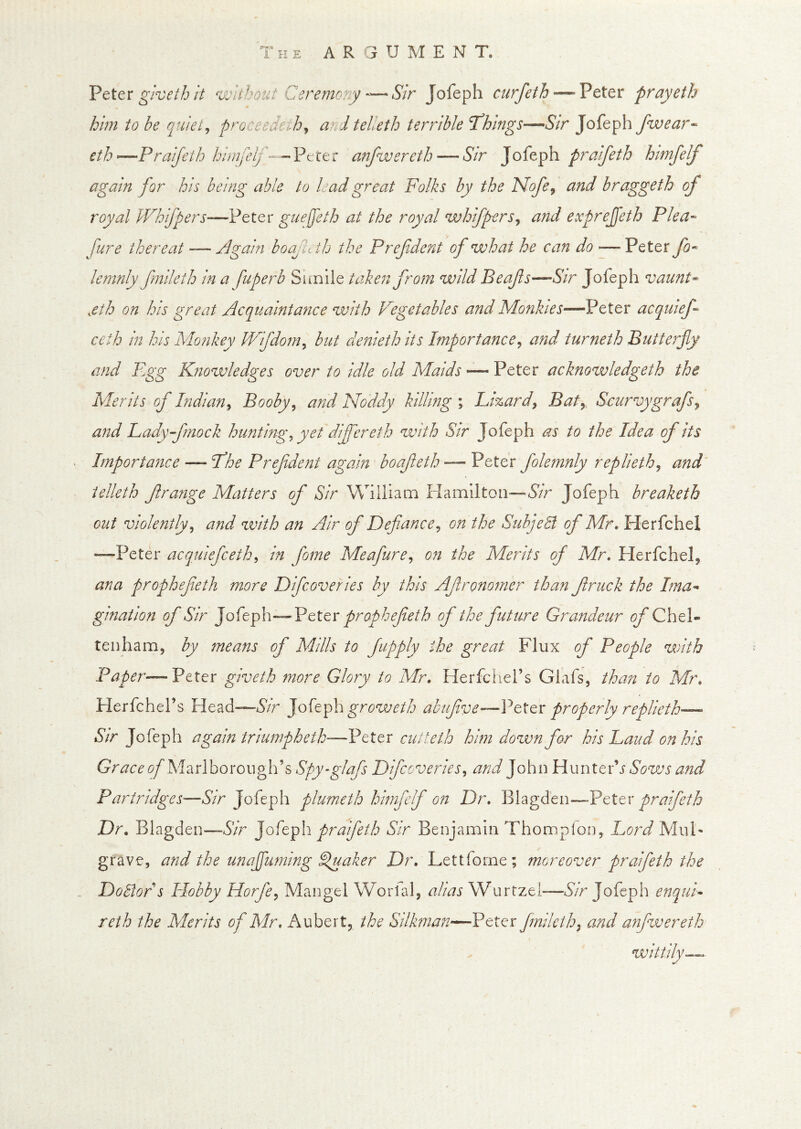 THE ARGUMENT.
Peter giveth it without Ceremony — Sir Joſeph curſeth — Peter prayeth
him to be quiet, proceedeth, and telleth terrible Things—Sir Joſeph ſwear-
eth—Praiſeth himſelf—Peter anſwereth — Sir Joſeph praiſeth himſelf
again for his being able to lead great Folks by the Noſe, and braggeth of
royal Whiſpers—Peter gueſſeth at the royal whiſpers, and expreſſeth Plea-
ſure thereat — Again boaſteth the Preſident of what he can do — Peter ſo-
lemnly ſmileth in a ſuperb Simile taken from wild Beaſts—Sir Joſeph vaunt-
eth on his great Acquaintance with Vegetables and Monkies—Peter acquieſ-
ceth in his Monkey Wiſdom, but denieth its Importance, and turneth Butterfly
and Egg Knowledges over to idle old Maids — Peter acknowledgeth the
Merits of Indian, Booby, and Noddy killing ; Lizard, Bat, Scurvygraſs,
and Lady-ſmock hunting, yet differeth with Sir Joſeph as to the Idea of its
Importance — The Preſident again boaſteth — Peter ſolemnly replieth, and
telleth ſtrange Matters of Sir William Hamilton—Sir Joſeph breaketh
out violently, and with an Air of Defiance, on the Subject of Mr. Herſchel
—Peter acquieſceth, in ſome Meaſure, on the Merits of Mr. Herſchel,
and propheſieth more Diſcoveries by this Aſtronomer than ſtruck the Ima-
gination of Sir Joſeph—Peter propheſieth of the future Grandeur of Chel-
tenham, by means of Mills to ſupply the great Flux of People with
Paper—Peter giveth more Glory to Mr. Herſchel's Glaſs, than to Mr.
Herſchel's Head—Sir Joſeph groweth abuſive—Peter properly replieth—
Sir Joſeph again triumpheth—Peter cutteth him down for his Laud on his
Grace of Marlborough's Spy-glaſs Diſcoveries, and John Hunter's Sows and
Partridges—Sir Joſeph plumeth himſelf on Dr. Blagden—Peter praiſeth
Dr. Blagden—Sir Joſeph praiſeth Sir Benjamin Thompſon, Lord Mul-
grave, and the unaſſuming Quaker Dr. Lettſome ; moreover praiſeth the
Doctor's Hobby Horſe, Mangel Worſal, alias Wurtzel—Sir Joſeph enqui-
reth the Merits of Mr. Aubert, the Silkman—Peter ſmileth, and anſwereth
wittily—